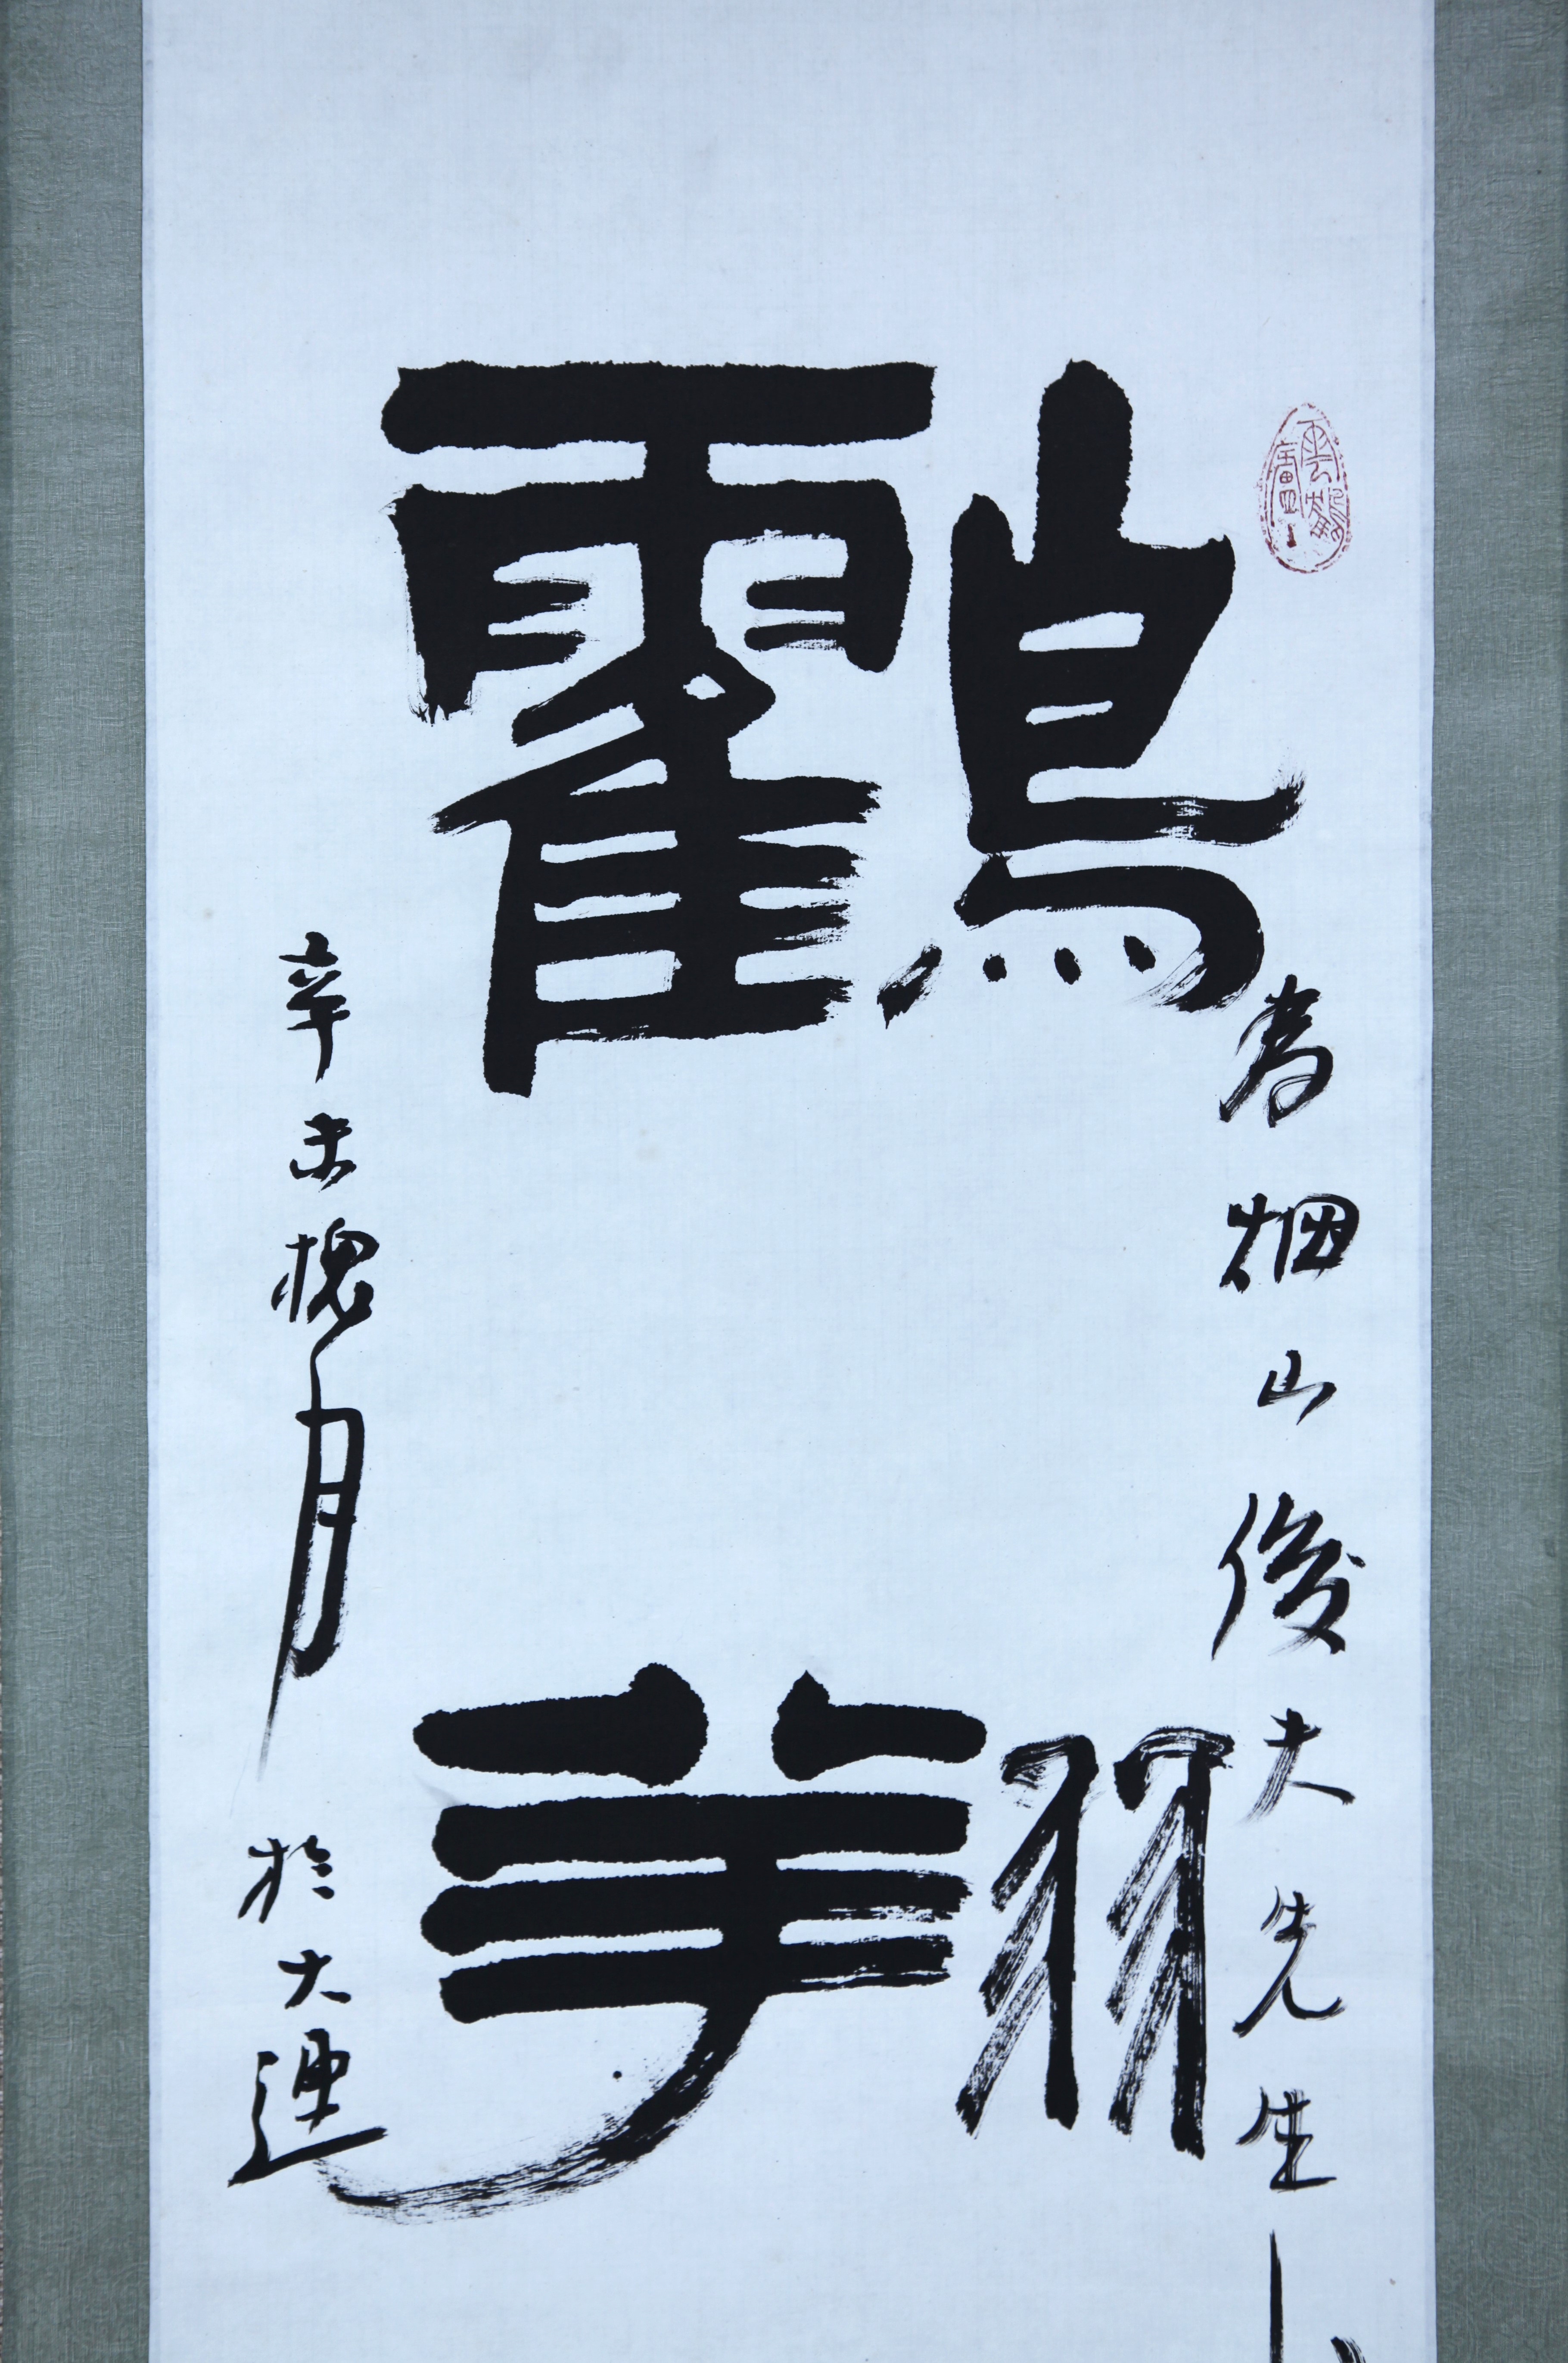 為烟山俊夫先生
鶴翔
辛未槐月於大連